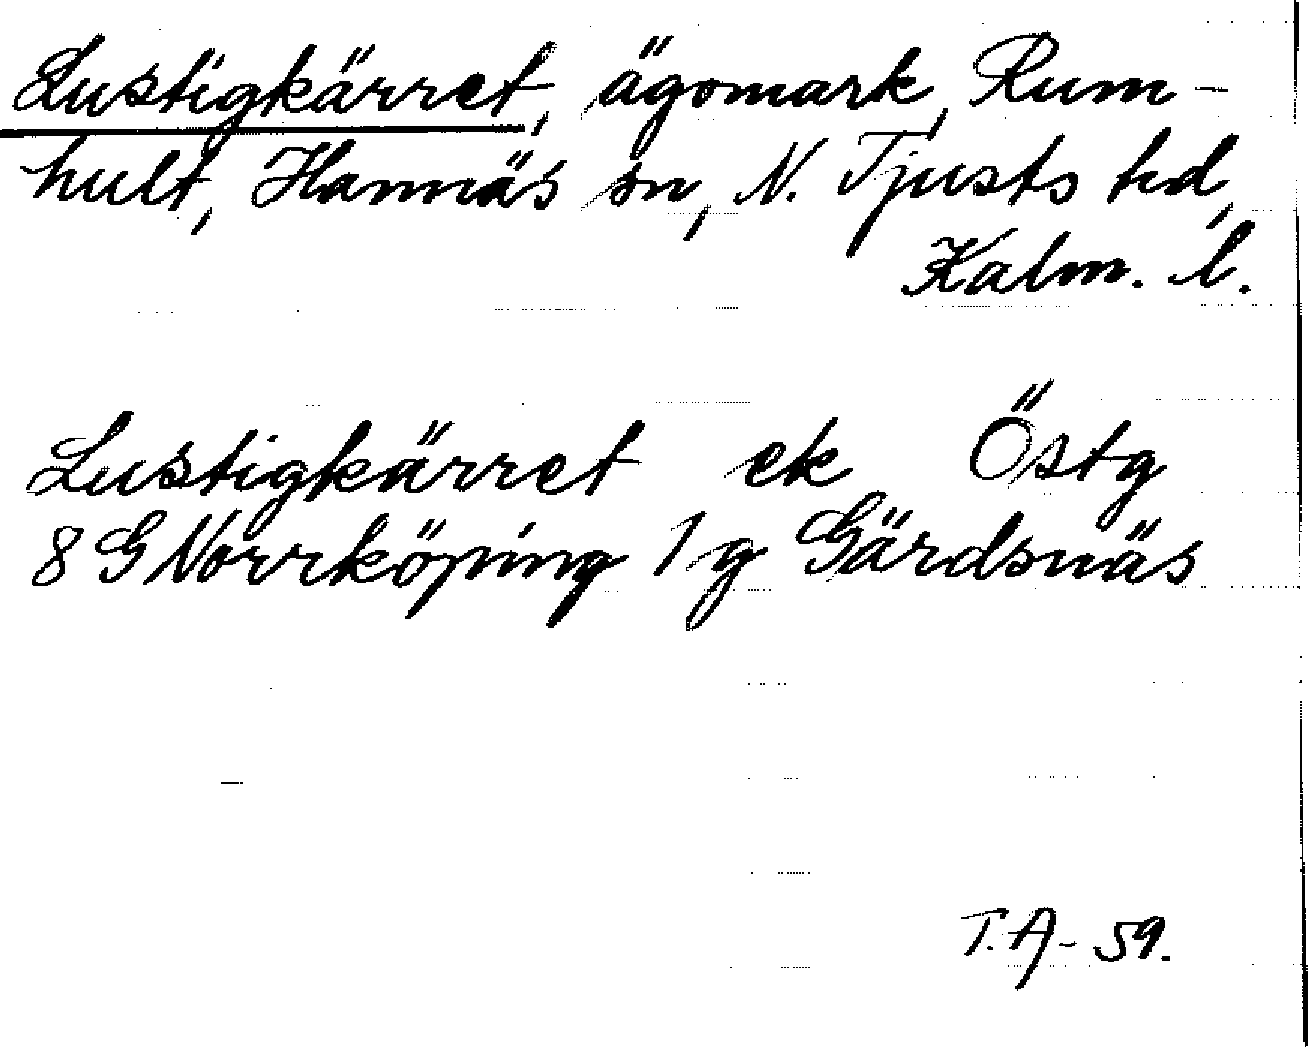 Lustigkärret, ägomark, Rum-
hult, Hannäs sn, N. Tjusts hd,
Kalm. l.
Lustigkärret ek Östg
8 G Norrköping 1 g Gärdsnäs
T.A - 59.